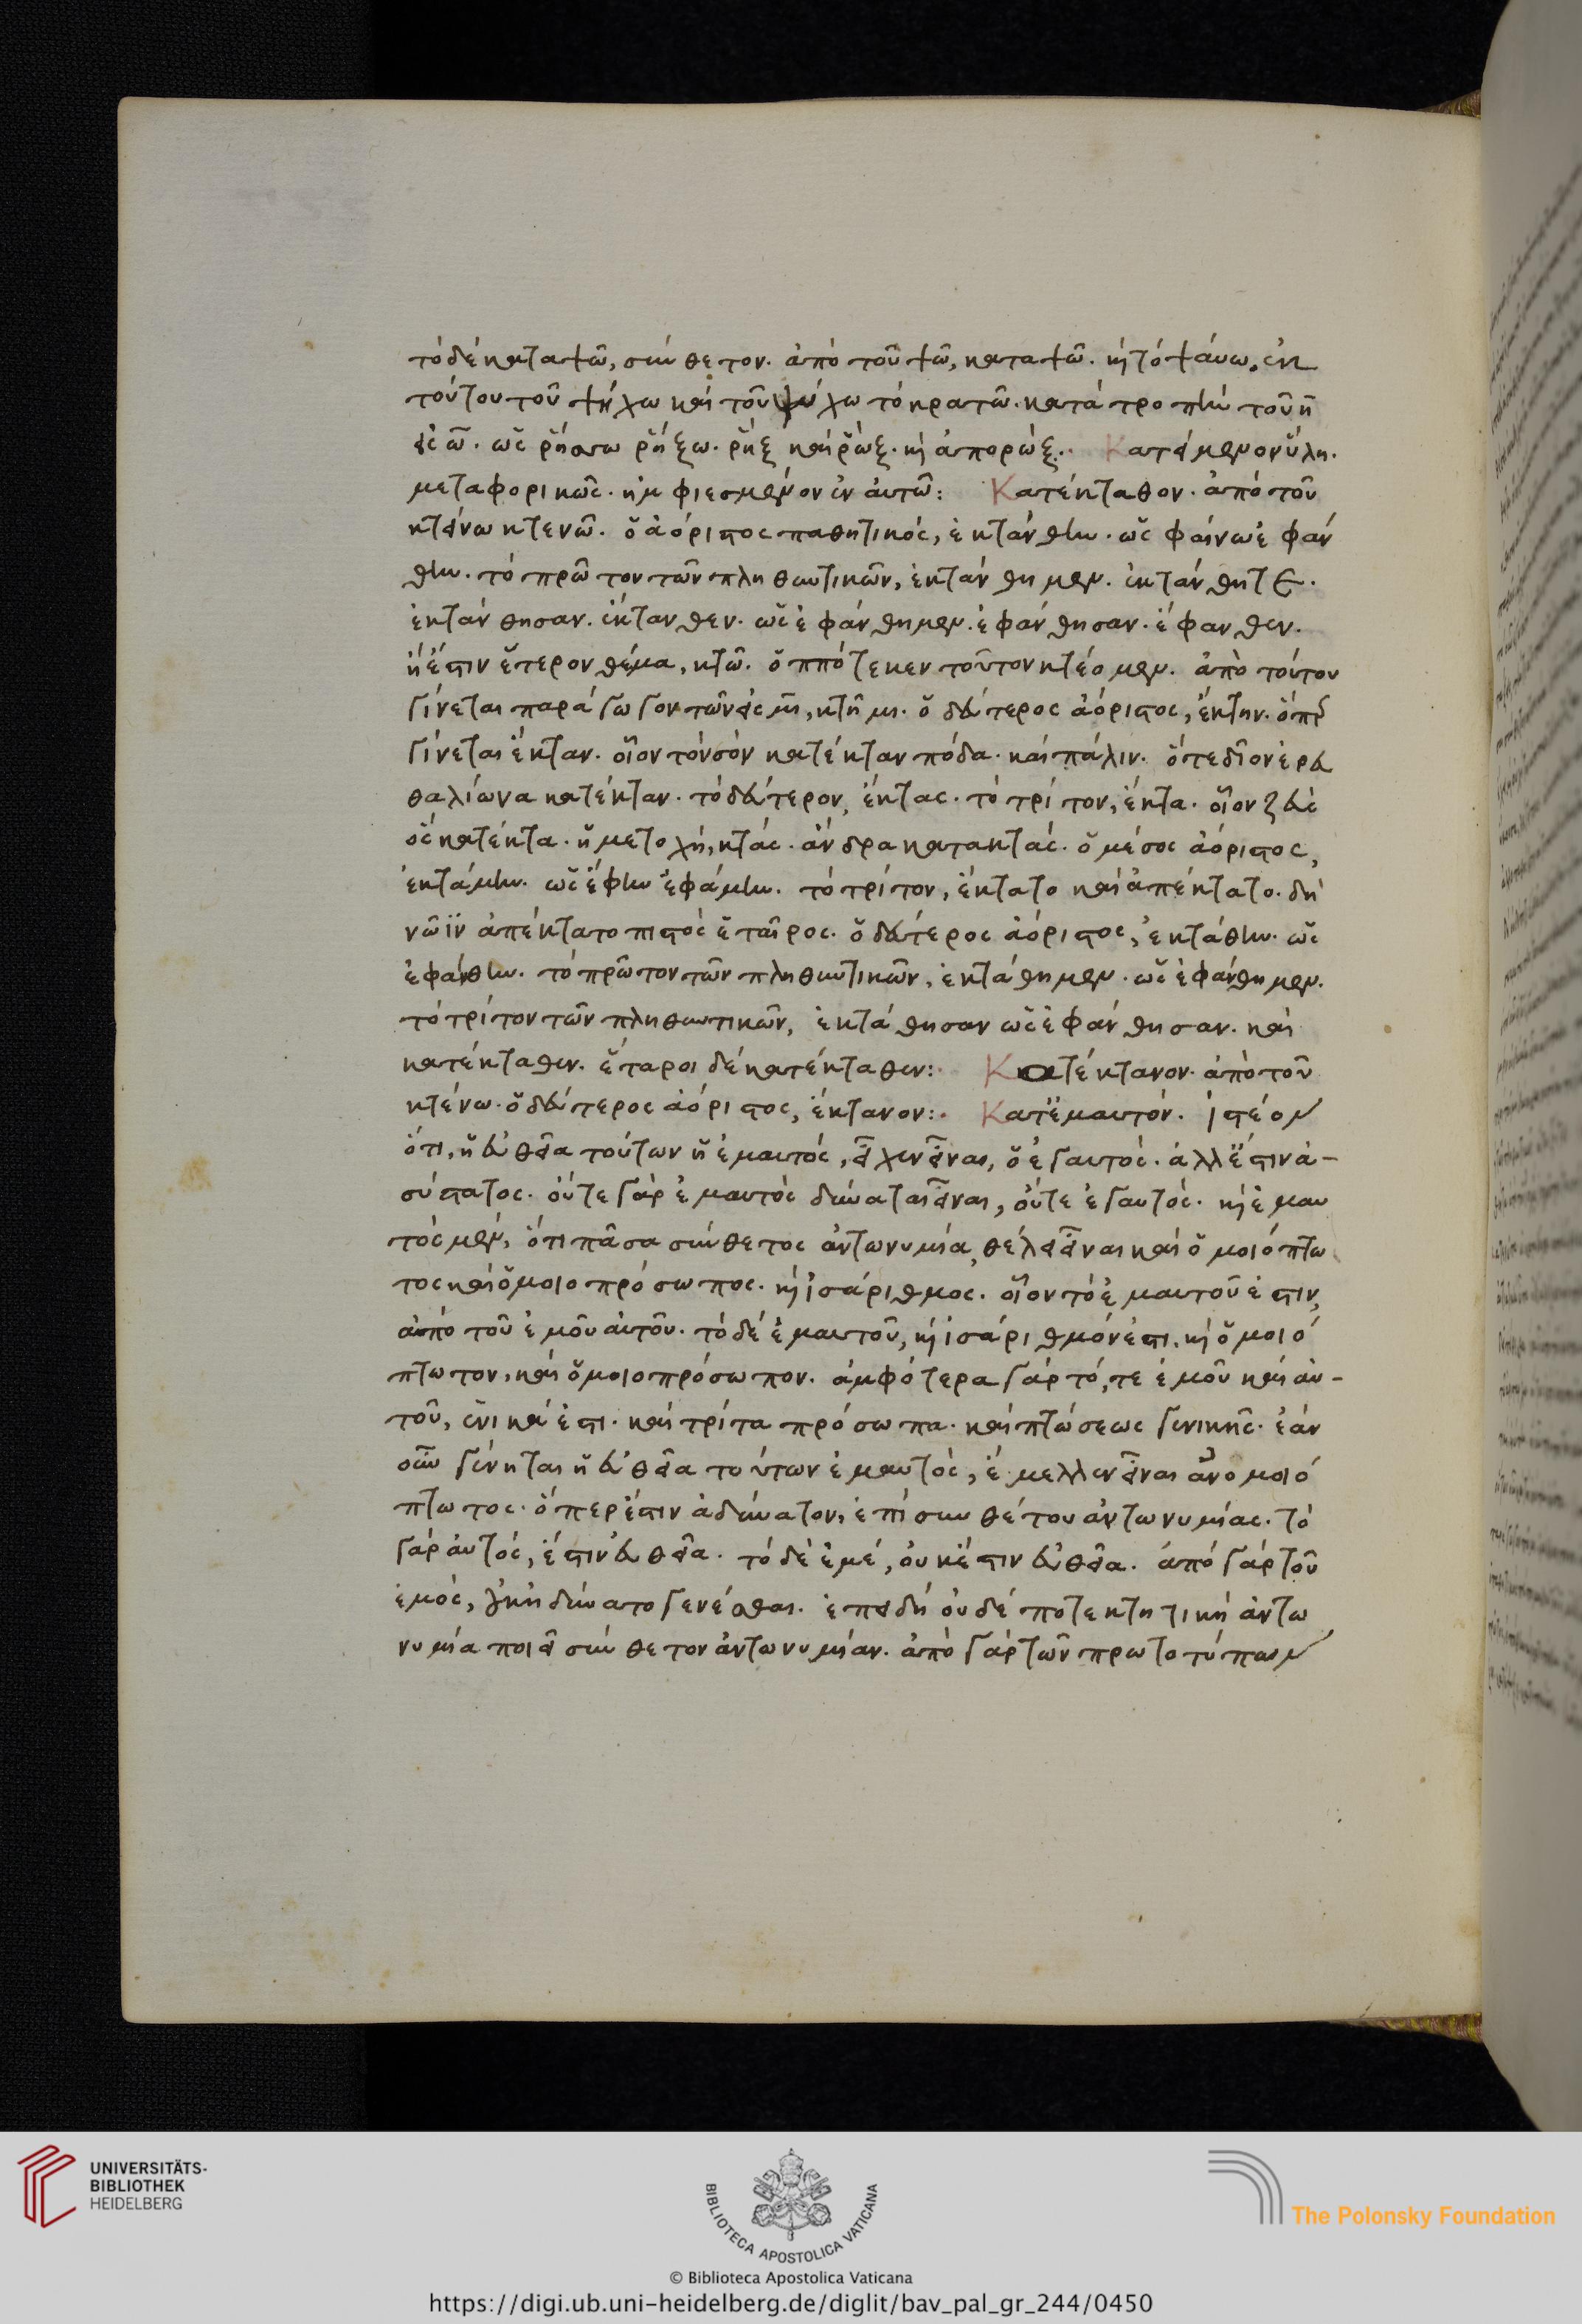 τὸ δὲ καταψῶ, σύνθετον. ἀπὸ τοῦ ψῶ, καταψῶ. καὶ τὸ ψάυω. ἐκ
τούτου τοῦ ψήχω καὶ τοῦ ψύχω τὸ κρατῶ. κατὰ τροπὴν τοῦ η
εἰς ω. ὡς ῥήσσω ῥήξω. ῥὴξ καὶ ῥὼξ. καὶ ἀπορώξ. Κατειμένον ὕλη.
μεταφορικῶς. ἠμφιεσμένον ἐν ἀυτῶ: Κατέκταθον. ἀπὸ τοῦ
κτείνω κτενῶ. ὁ ἀόριστος παθητικός, ἐκτάνθην. ὡς φαίνω ἐφάν
θην. τὸ πρῶτον τῶν πληθυντικῶν, ἐκτάνθημεν. ἐκτάνθητε.
ἐκτάνθησαν. ἔκτανθεν. ὡς ἐφάνθημεν. ἐφάνθησαν. ἔφανθεν.
ἢ ἔστιν ἕτερον θέμα, κτῶ. ὁππότε κεν τοῦτον κτέομεν. ἀπὸ τούτου
γίνεται παράγωγον τῶν εἰς μι, κτῆμι. ὁ δεύτερος ἀόριστος, ἔκτην. ὅπερ
γίνεται ἔκταν. οἷον τὸν σὸν κατέκταν πόδα. καὶ πάλιν. ὅτε δῖον ἐρευ
θαλίωνα κατέκταν. τὸ δεύτερον, ἔκτας. τὸ τρίτον, ἔκτα. οἷον ζεὺς
ὃς κατέκτα. ἡ μετοχή, κτάς. ἄνδρα κατακτάς. ὁ μέσος ἀόριστος,
ἐκτάμην. ὡς ἔφην ἐφάμην. τὸ τρίτον, ἔκτατο καὶ ἀπέκτατο. δὴ
νῶϊν ἀπέκτατο πιστὸς ἑταῖρος. ὁ δεύτερος ἀόριστος, ἐκτάθην. ὡς
ἐφάνθην. τὸ πρῶτον τῶν πληθυντικῶν, ἐκτάθημεν. ὡς ἐφάνθημεν.
τὸ τρίτον τῶν πληθυντικῶν, ἐκτάθησαν ὡς ἐφάνθησαν. καὶ
κατέκταθεν. ἕταροι δὲ κατέκταθεν: Κατέκτανον. ἀπὸ τοῦ
κτένω. ὁ δεύτερος ἀόριστος, ἔκτανον: Κατ' ἐμαυτόν. ἰστέον
ὅτι, ἡ εὐθεῖα τούτων ἢ ἐμαυτός, εἶχεν εἶναι, ὁ ἐγαυτός. ἀλλ' ἔστιν ἀ-
σύστατος. οὔτε γὰρ ἐμαυτὸς δύναται εἶναι, οὔτε ἐγαυτός. καὶ ἐμαυ
τὸς μὲν, ὅτι πᾶσα σύνθετος ἀντωνυμία, θέλει εἶναι καὶ ὁμοιόπτω
τος καὶ ὁμοιοπρόσωπος. καὶ ἰσάριθμος. οἷον τὸ ἐμαυτοῦ ἐστιν,
ἀπὸ τοῦ ἐμοῦ ἀυτοῦ. τὸ δὲ ἐμαυτοῦ, καὶ ἰσάριθμόν ἐστι. καὶ ὁμοιό
πτωτον, καὶ ὁμοιοπρόσωπον. ἀμφότερα γὰρ τό, τε ἐμοῦ καὶ ἀυ-
τοῦ, ἑνικά ἐστι. καὶ τρίτα πρόσωπα. καὶ πτώσεως γενικῆς. ἐὰν
οὖν γένηται ἡ εὐθεῖα τούτων ἐμαυτός, ἔμελλεν εἶναι ἀνομοιό
πτωτος. ὅπερ ἔστιν ἀδύνατον, ἐπὶ συνθέτου ἀντωνυμίας. τὸ
γὰρ ἀυτός, ἔστιν εὐθεῖα. τὸ δὲ ἐμέ, οὐκ ἔστιν εὐθεῖα. ἀπὸ γὰρ τοῦ
ἐμός, οὐκ ἠδύνατο γενέσθαι. ἐπειδὴ οὐδέποτε κτητικὴ ἀντω
νυμία ποιεῖ σύνθετον ἀντωνυμίαν. ἀπὸ γὰρ τῶν πρωτοτύπων
UNIVERSITÄTS-
BIBLIOTHEK
HEIDELBERG
BIBLIOTECA APOSTOLICA VATICANA
The Polonsky Foundation
© Biblioteca Apostolica Vaticana
https://digi.ub.uni-heidelberg.de/diglit/bav_pal_gr_244/0450